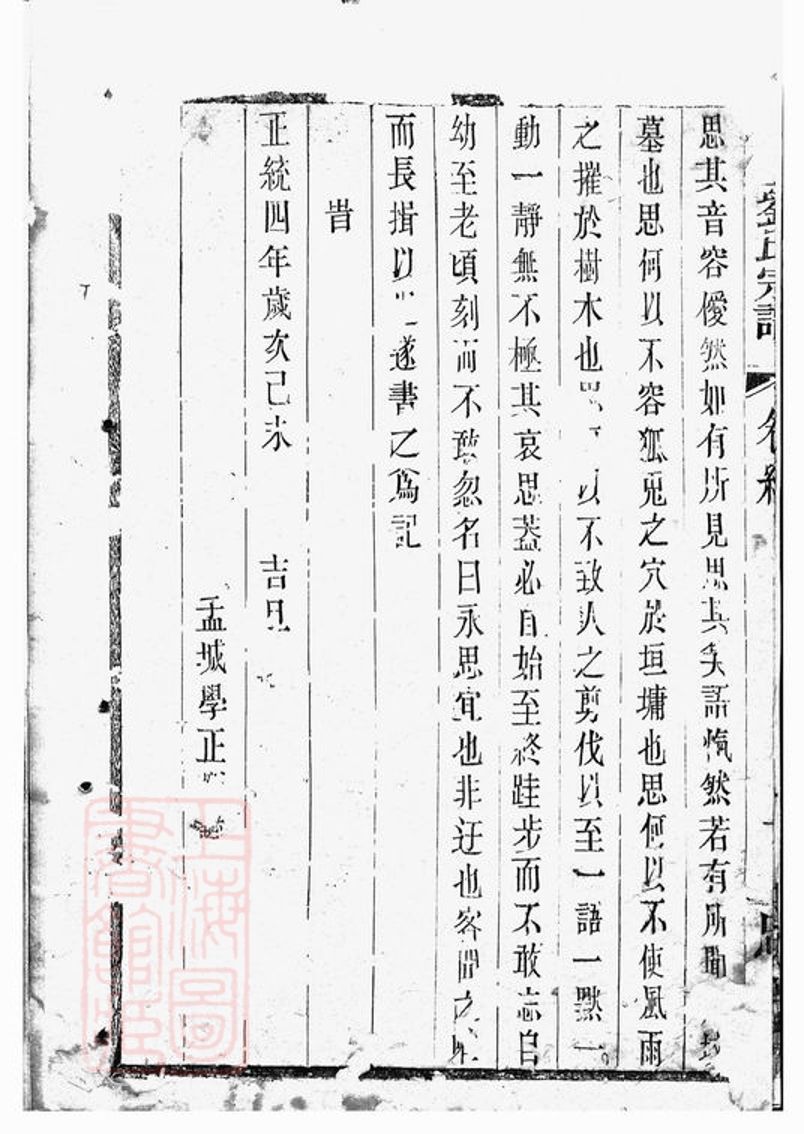 氏宗譜 卷
思其音容僾然如有所見思其笑語愾然若有所聞
墓也思何以不容狐兎之穴於垣墉也思何以不使風雨
之摧於樹木也思以不致人之剪伐以至一語一默一
動一靜無不極其哀思蓋必自始至終跬步而不敢忘自
幼至老頃刻而不敢忽名曰永思宜也非迂也客聞之
而長揖以遂書之爲記
旹
正統四年歲次己未 吉旦
孟城學正
上海圖書館藏